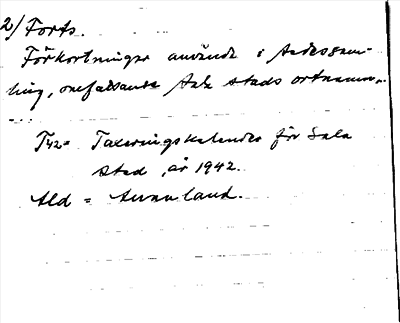 2/ Forts.
Förkortningar använda i Ardossam-
ling, omfattande Sala stads ortnamn...
T42= Taxeringskalender för Sala
stad, år 1942.
Ald = Annanland.